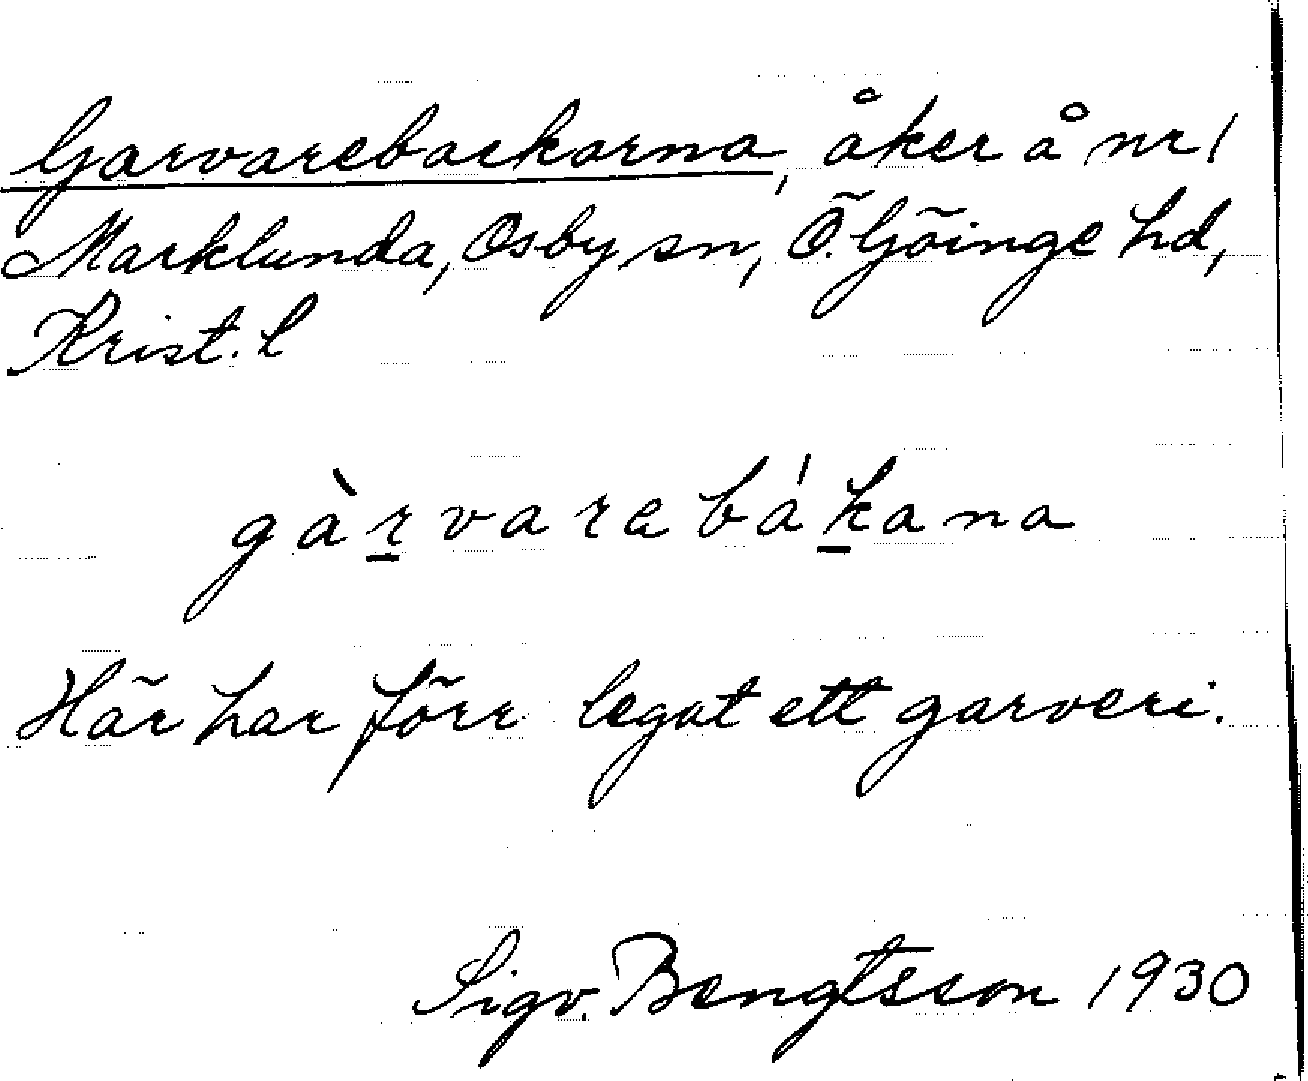 Garvarebackarna, åker å nr 1
Marklunda, Osby sn, Ö. Göinge hd,
Krist. l
gàr̲varebák̲ana
Här har förr legat ett garveri.
Sigv. Bengtsson 1930